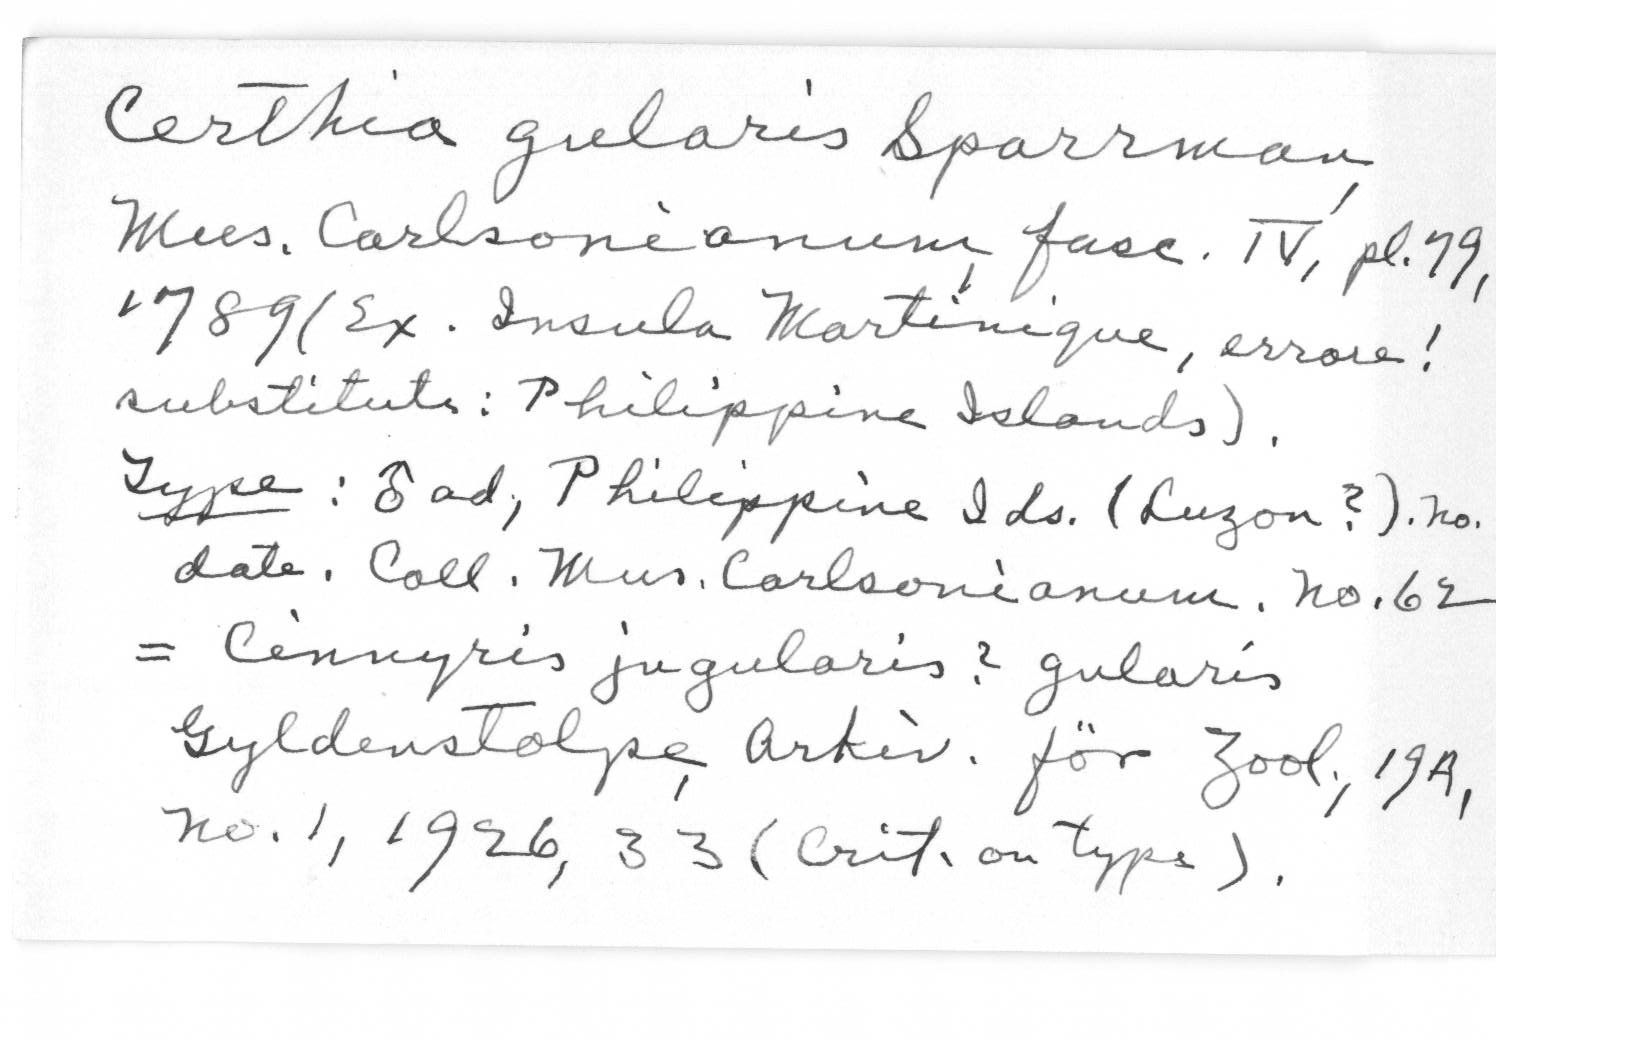 Certhia gularis Sparrman,
Mus. Carlsonianum, fasc. IV, pl. 79,
1789 (Ex. Insula Martinique, errore!
substitute: Philippine Islands).
Type: ♂ ad, Philippine Ids. (Luzon?). No.
date. Coll. Mus. Carlsonianum. No. 62
= Cinnyris jugularis? gularis
Gyldenstolpe, Arkiv. för Zool., 19A,
No. 1, 1926, 33 (Crit. on type).